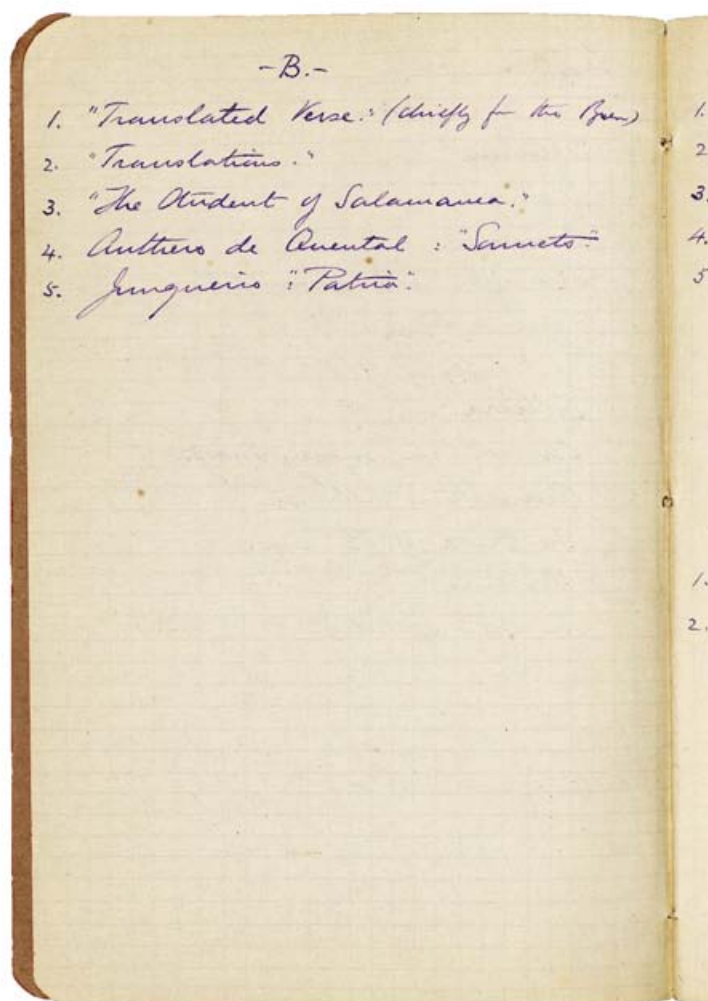 -B.-
1. "Translated Verse." (chiefly for the
2. "Translations."
3. "The Student of Salamanca."
4. Anthero de Quental : "Sonnets"
5. Junqueiro : "Patria".
1.
2
3.
4.
5
1.
2.